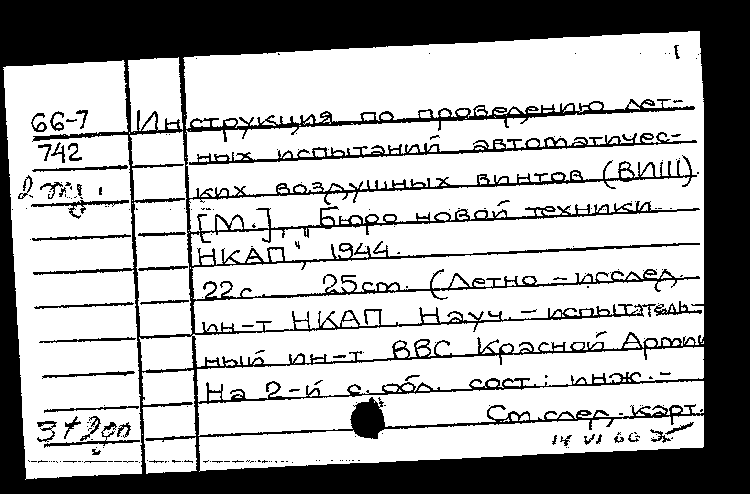 1
66-7 Инструкция по проведению лет-
742 ных испытаний автоматичес-
ких воздушных винтов (ВИШ).
[М.], "Бюро новой техники
НКАП", 1944.
22с. 25cm. (Летно-исслед.
ин-т НКАП. Науч.-испытатель-
ный ин-т ВВС Красной Армии
На 2-й с. обл. сост.: инж.-
См. след. карт.
14 VI 60